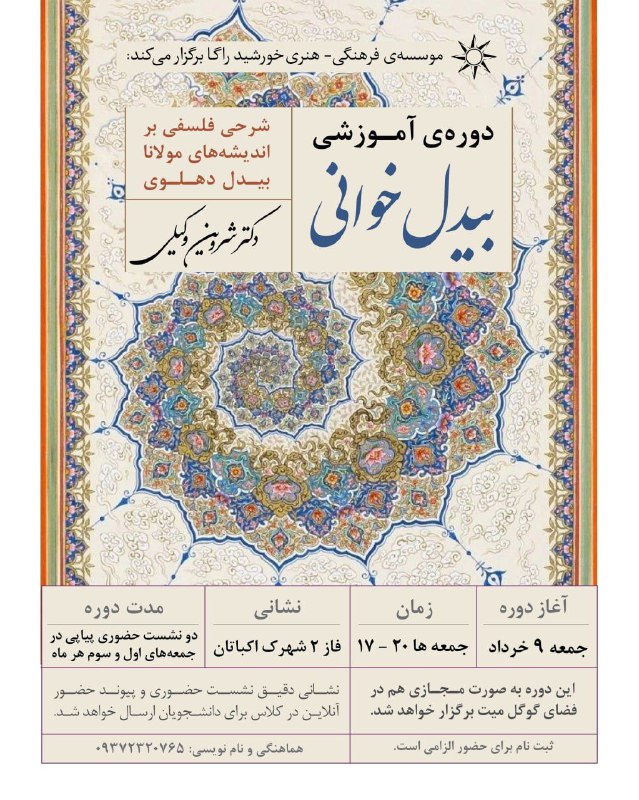 موسسه‌ی فرهنگی- هنری خورشید راگا برگزار می‌کند:
دوره‌ی آمـوزشی
بیدل خوانی
شرحی فلسفی بر
اندیشه‌های مولانا
بیـدل دهـلـوی
دکتر شروین وکیلی
آغاز دوره
جمعه ۹ خرداد
زمان
جمعه ها ۲۰ - ۱۷
نشانی
فاز ۲ شهرک اکباتان
مدت دوره
دو نشست حضوری پیاپی در
جمعه‌های اول و سوم هر ماه
این دوره به صورت مـجـازی هم در
فضای گوگل میت برگزار خواهد شد.
نشـانی دقیـق نشست حضـوری و پیونـد حضـور
آنلاین در کلاس برای دانشجویان ارسال خواهد شـد.
ثبت نام برای حضور الزامی است.
هماهنگی و نام نویسی: ۰۹۳۷۲۳۲۰۷۶۵